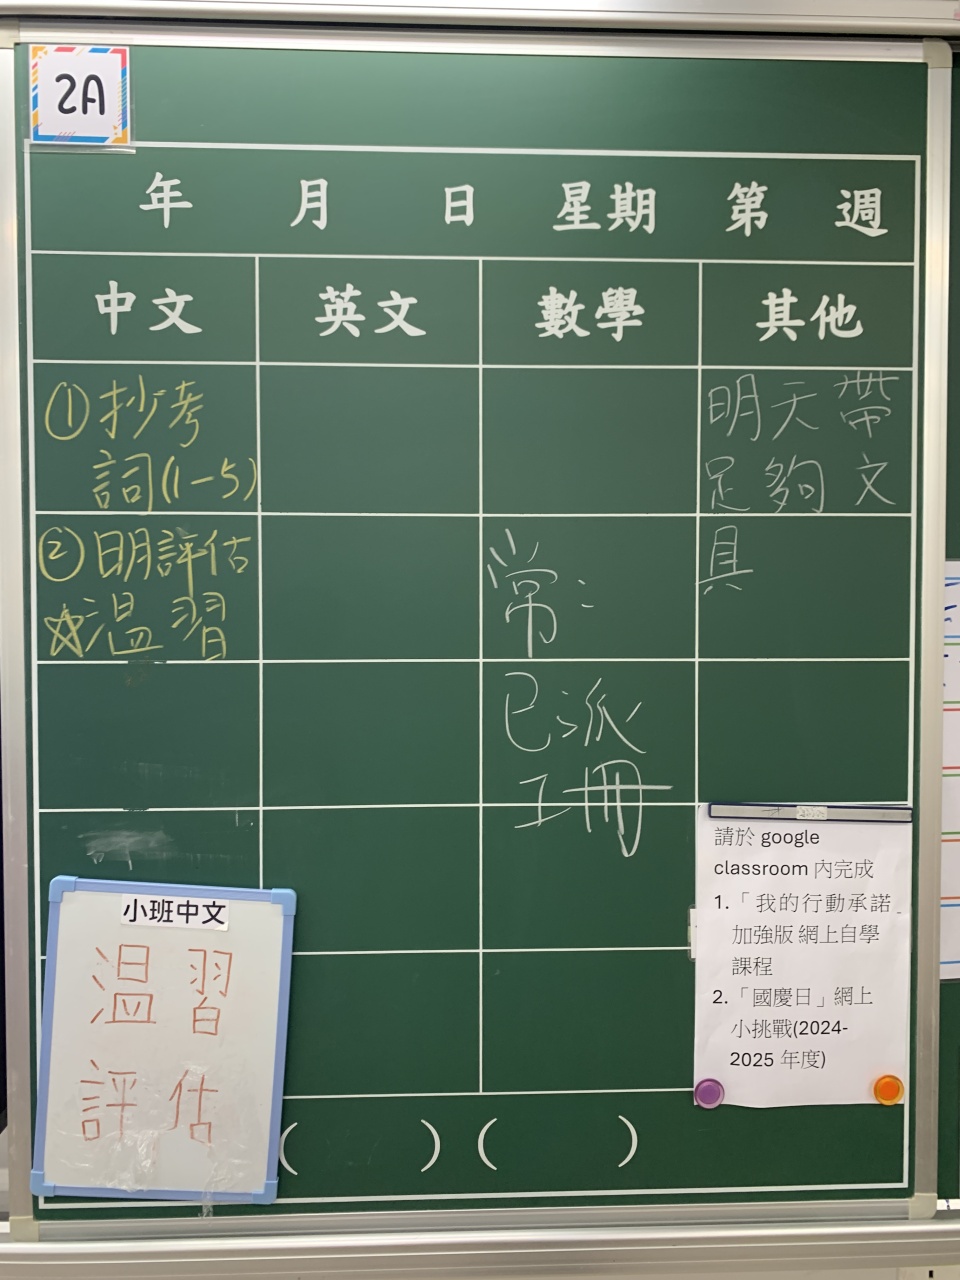 2A
年 月 日 星期 第 週
中文 英文 數學 其他
①抄考
詞(1-5)
②明評估
☆溫習
常:
已派
工冊
明天帶
足夠文
具
請於 google
classroom 內完成
1.「我的行動承諾
加強版 網上自學
課程
2.「國慶日」網上
小挑戰(2024-
2025 年度)
小班中文
溫習
評估
( ) ( )